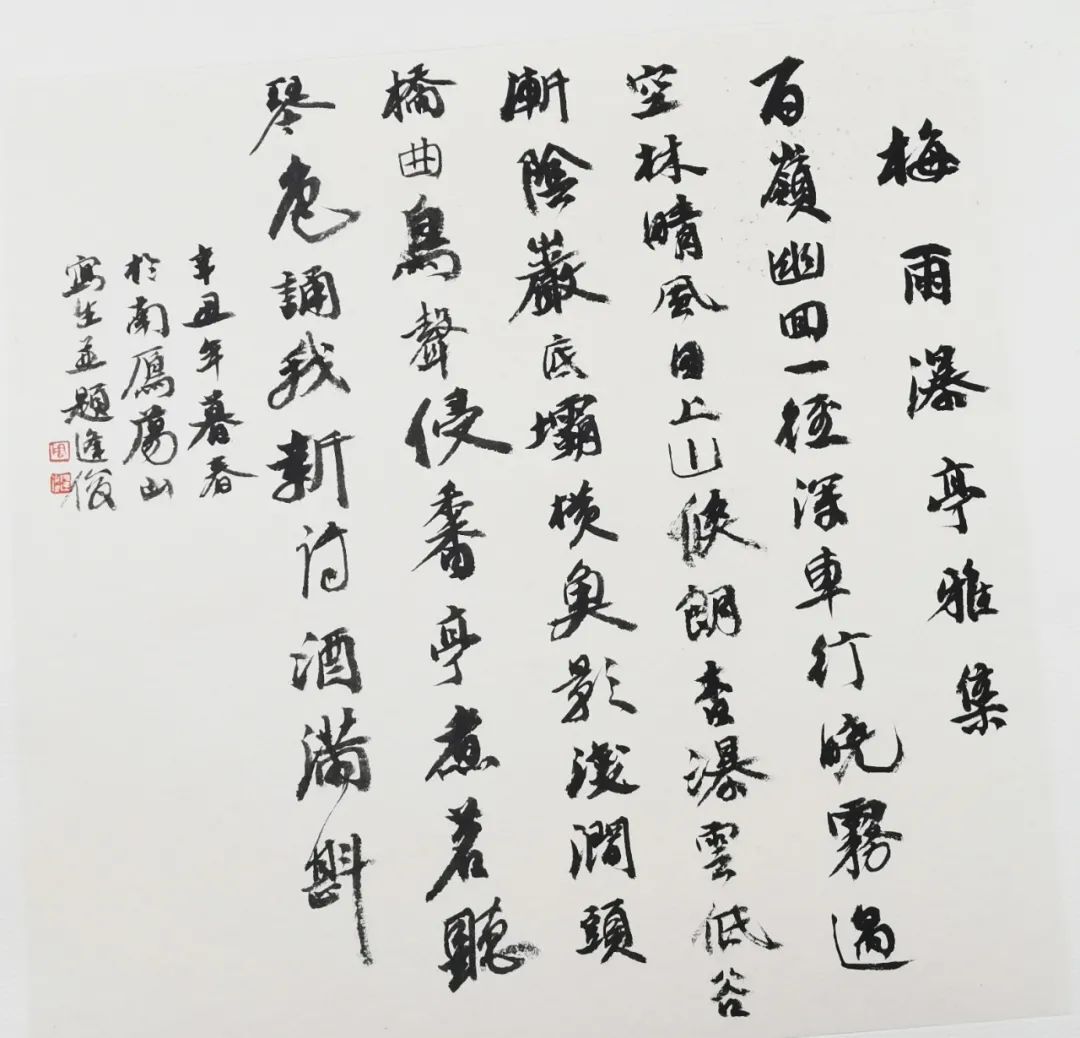 梅雨瀑亭雅集
百嶺幽回一徑深車行曉霧過
空林晴風日上山倏朗杳瀑雲低谷
漸陰巖底壩橫魚影淺澗頭
橋曲鳥聲侵香亭煮茗聽
琴處誦我新詩酒滿斟
辛丑年暮春
於南鴈蕩山
寫生並題逢俊